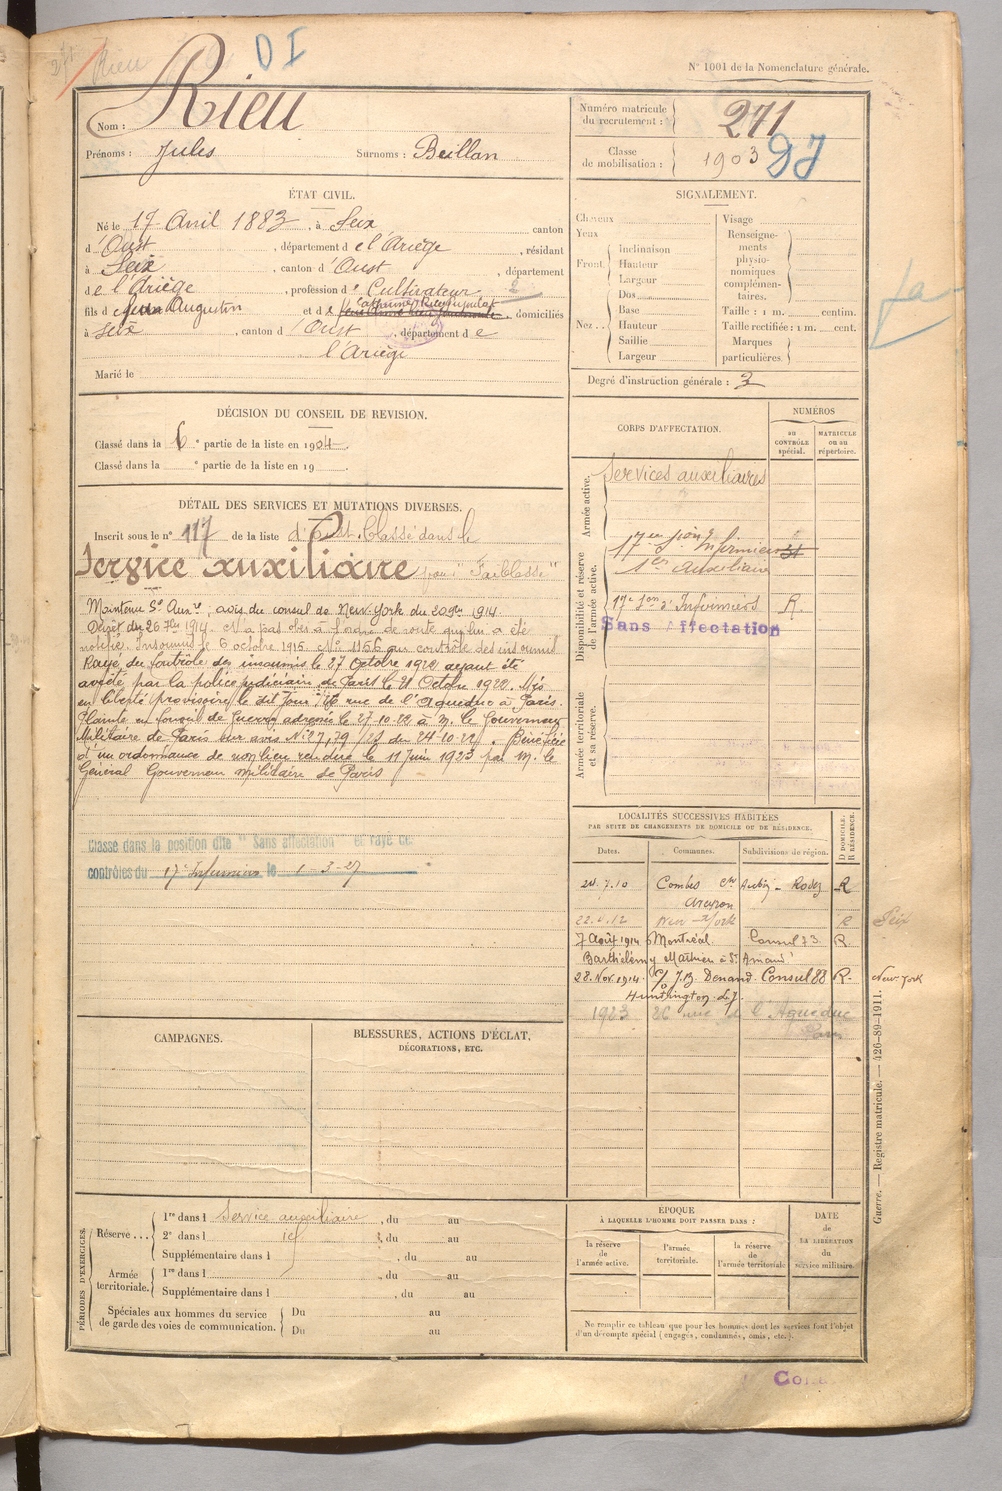 271 Rieu
D I
N° 1001 de la Nomenclature générale.
Nom : Rieu
Prénoms : Jules Surnoms : Beillan
Numéro matricule du recrutement : 271
Classe de mobilisation : 1903 DI
ÉTAT CIVIL.
Né le 17 Avril 1883, à Seix canton
d'Oust, département de l'Ariège, résidant
à Seix, canton d'Oust, département
de l'Ariège, profession d Cultivateur
fils de Jean Augustin et de Catherine Rieu Pujolat, domiciliés
à Seix, canton d'Oust, département de
l'Ariège
Marié le
SIGNALEMENT.
Cheveux
Yeux
Front
Inclinaison
Hauteur
Largeur
Nez
Dos
Base
Hauteur
Saillie
Largeur
Visage
Renseignements physionomiques complémentaires.
Taille : 1 m. centim.
Taille rectifiée : 1 m. cent.
Marques particulières
Degré d'instruction générale : 3
DÉCISION DU CONSEIL DE REVISION.
Classé dans la 6e partie de la liste en 1904
Classé dans la e partie de la liste en 19
CORPS D'AFFECTATION.
NUMÉROS
au CONTRÔLE spécial.
MATRICULE ou au répertoire.
Armée active.
Services auxiliaires
Disponibilité et réserve de l'armée active.
17e Son Infirmiers 31
Ses Auxiliaire
17e Son d'Infirmiers R.
Sans Affectation
Armée territoriale et sa réserve.
DÉTAIL DES SERVICES ET MUTATIONS DIVERSES.
Inscrit sous le n° 117 de la liste d'Oust. Classé dans le
Service auxiliaire pour "Faiblesse"
Maintenu Sce Auxre, avis du consul de New-York du 20 1914.
Décret du 26 7bre 1914. N'a pas obéi à l'ordre de route qui lui a été
notifié. Insoumis le 6 octobre 1915. N° 1156 au contrôle des insoumis
Rayé du contrôle des insoumis le 27 Octobre 1922 ayant été
arrêté par la police judiciaire de Paris le 21 Octobre 1922. Mis
en liberté provisoire le dit jour 26 rue de l'Aqueduc à Paris.
Plainte en Conseil de Guerre adressée le 27.10.22 à M. le Gouverneur
Militaire de Paris sur avis N° 27,79 du 24-10-22. Bénéficie
d'un ordonnance de non lieu rendue le 11 Juin 1923 par M. le
Général Gouverneur militaire de Paris
Classé dans la position dite "Sans affectation" et rayé des
contrôles du 17e Infirmiers le 1-3-27
LOCALITÉS SUCCESSIVES HABITÉES
PAR SUITE DE CHANGEMENTS DE DOMICILE OU DE RÉSIDENCE.
Dates. Communes. Subdivisions de région. D DOMICILE. R RÉSIDENCE.
24.7.10 Combes Cne Aubin - Rodez R
Aveyron
22.4.12 New-York R Seix
7 Août 1914 Montréal. Consul 73. R.
Barthélemy Mathieu à St Amand
28. Nov. 1914. c/o J.B. Denand. Consul 88 R. New-York
Huntington
1923 26 rue de l'Aqueduc
Paris
CAMPAGNES.
BLESSURES, ACTIONS D'ÉCLAT,
DÉCORATIONS, ETC.
PÉRIODES D'EXERCICES.
Réserve
1re dans l Service auxiliaire, du au
2e dans l id, du au
Supplémentaire dans l, du au
Armée territoriale.
1re dans l, du au
Supplémentaire dans l, du au
Spéciales aux hommes du service de garde des voies de communication.
Du au
Du au
EPOQUE
À LAQUELLE L'HOMME DOIT PASSER DANS :
la réserve de l'armée active.
l'armée territoriale.
la réserve de l'armée territoriale.
DATE de LA LIBÉRATION du service militaire.
Ne remplir ce tableau que pour les hommes dont les services font l'objet
d'un décompte spécial (engagés, condamnés, omis, etc.).
Guerre. — Registre matricule. — 426-89-1911.